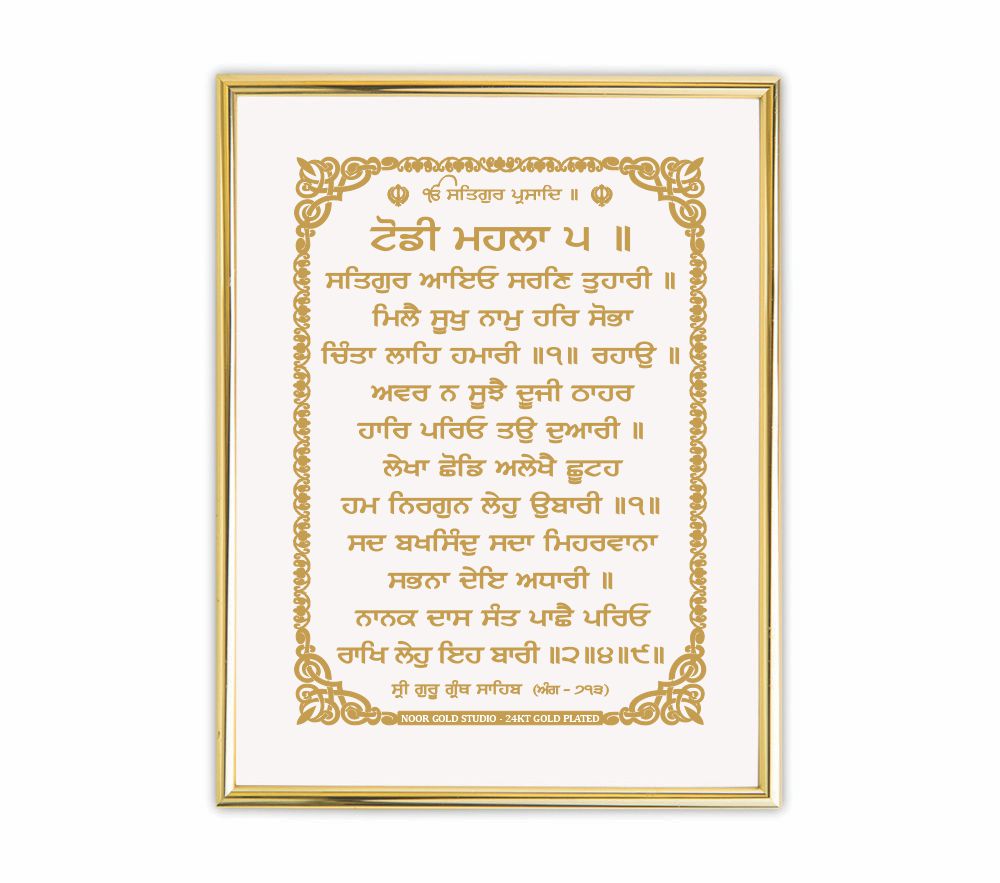 ੴ ਸਤਿਗੁਰ ਪ੍ਰਸਾਦਿ ॥
ਟੋਡੀ ਮਹਲਾ ੫ ॥
ਸਤਿਗੁਰ ਆਇਓ ਸਰਣਿ ਤੁਹਾਰੀ ॥
ਮਿਲੈ ਸੂਖੁ ਨਾਮੁ ਹਰਿ ਸੋਭਾ
ਚਿੰਤਾ ਲਾਹਿ ਹਮਾਰੀ ॥੧॥ ਰਹਾਉ ॥
ਅਵਰ ਨ ਸੂਝੈ ਦੂਜੀ ਠਾਹਰ
ਹਾਰਿ ਪਰਿਓ ਤਉ ਦੁਆਰੀ ॥
ਲੇਖਾ ਛੋਡਿ ਅਲੇਖੈ ਛੂਟਹ
ਹਮ ਨਿਰਗੁਨ ਲੇਹੁ ਉਬਾਰੀ ॥੧॥
ਸਦ ਬਖਸਿੰਦੁ ਸਦਾ ਮਿਹਰਵਾਨਾ
ਸਭਨਾ ਦੇਇ ਅਧਾਰੀ ॥
ਨਾਨਕ ਦਾਸ ਸੰਤ ਪਾਛੈ ਪਰਿਓ
ਰਾਖਿ ਲੇਹੁ ਇਹ ਬਾਰੀ ॥੨॥੪॥੯॥
ਸ੍ਰੀ ਗੁਰੂ ਗ੍ਰੰਥ ਸਾਹਿਬ (ਅੰਗ - ੭੧੩)
NOOR GOLD STUDIO - 24KT GOLD PLATED